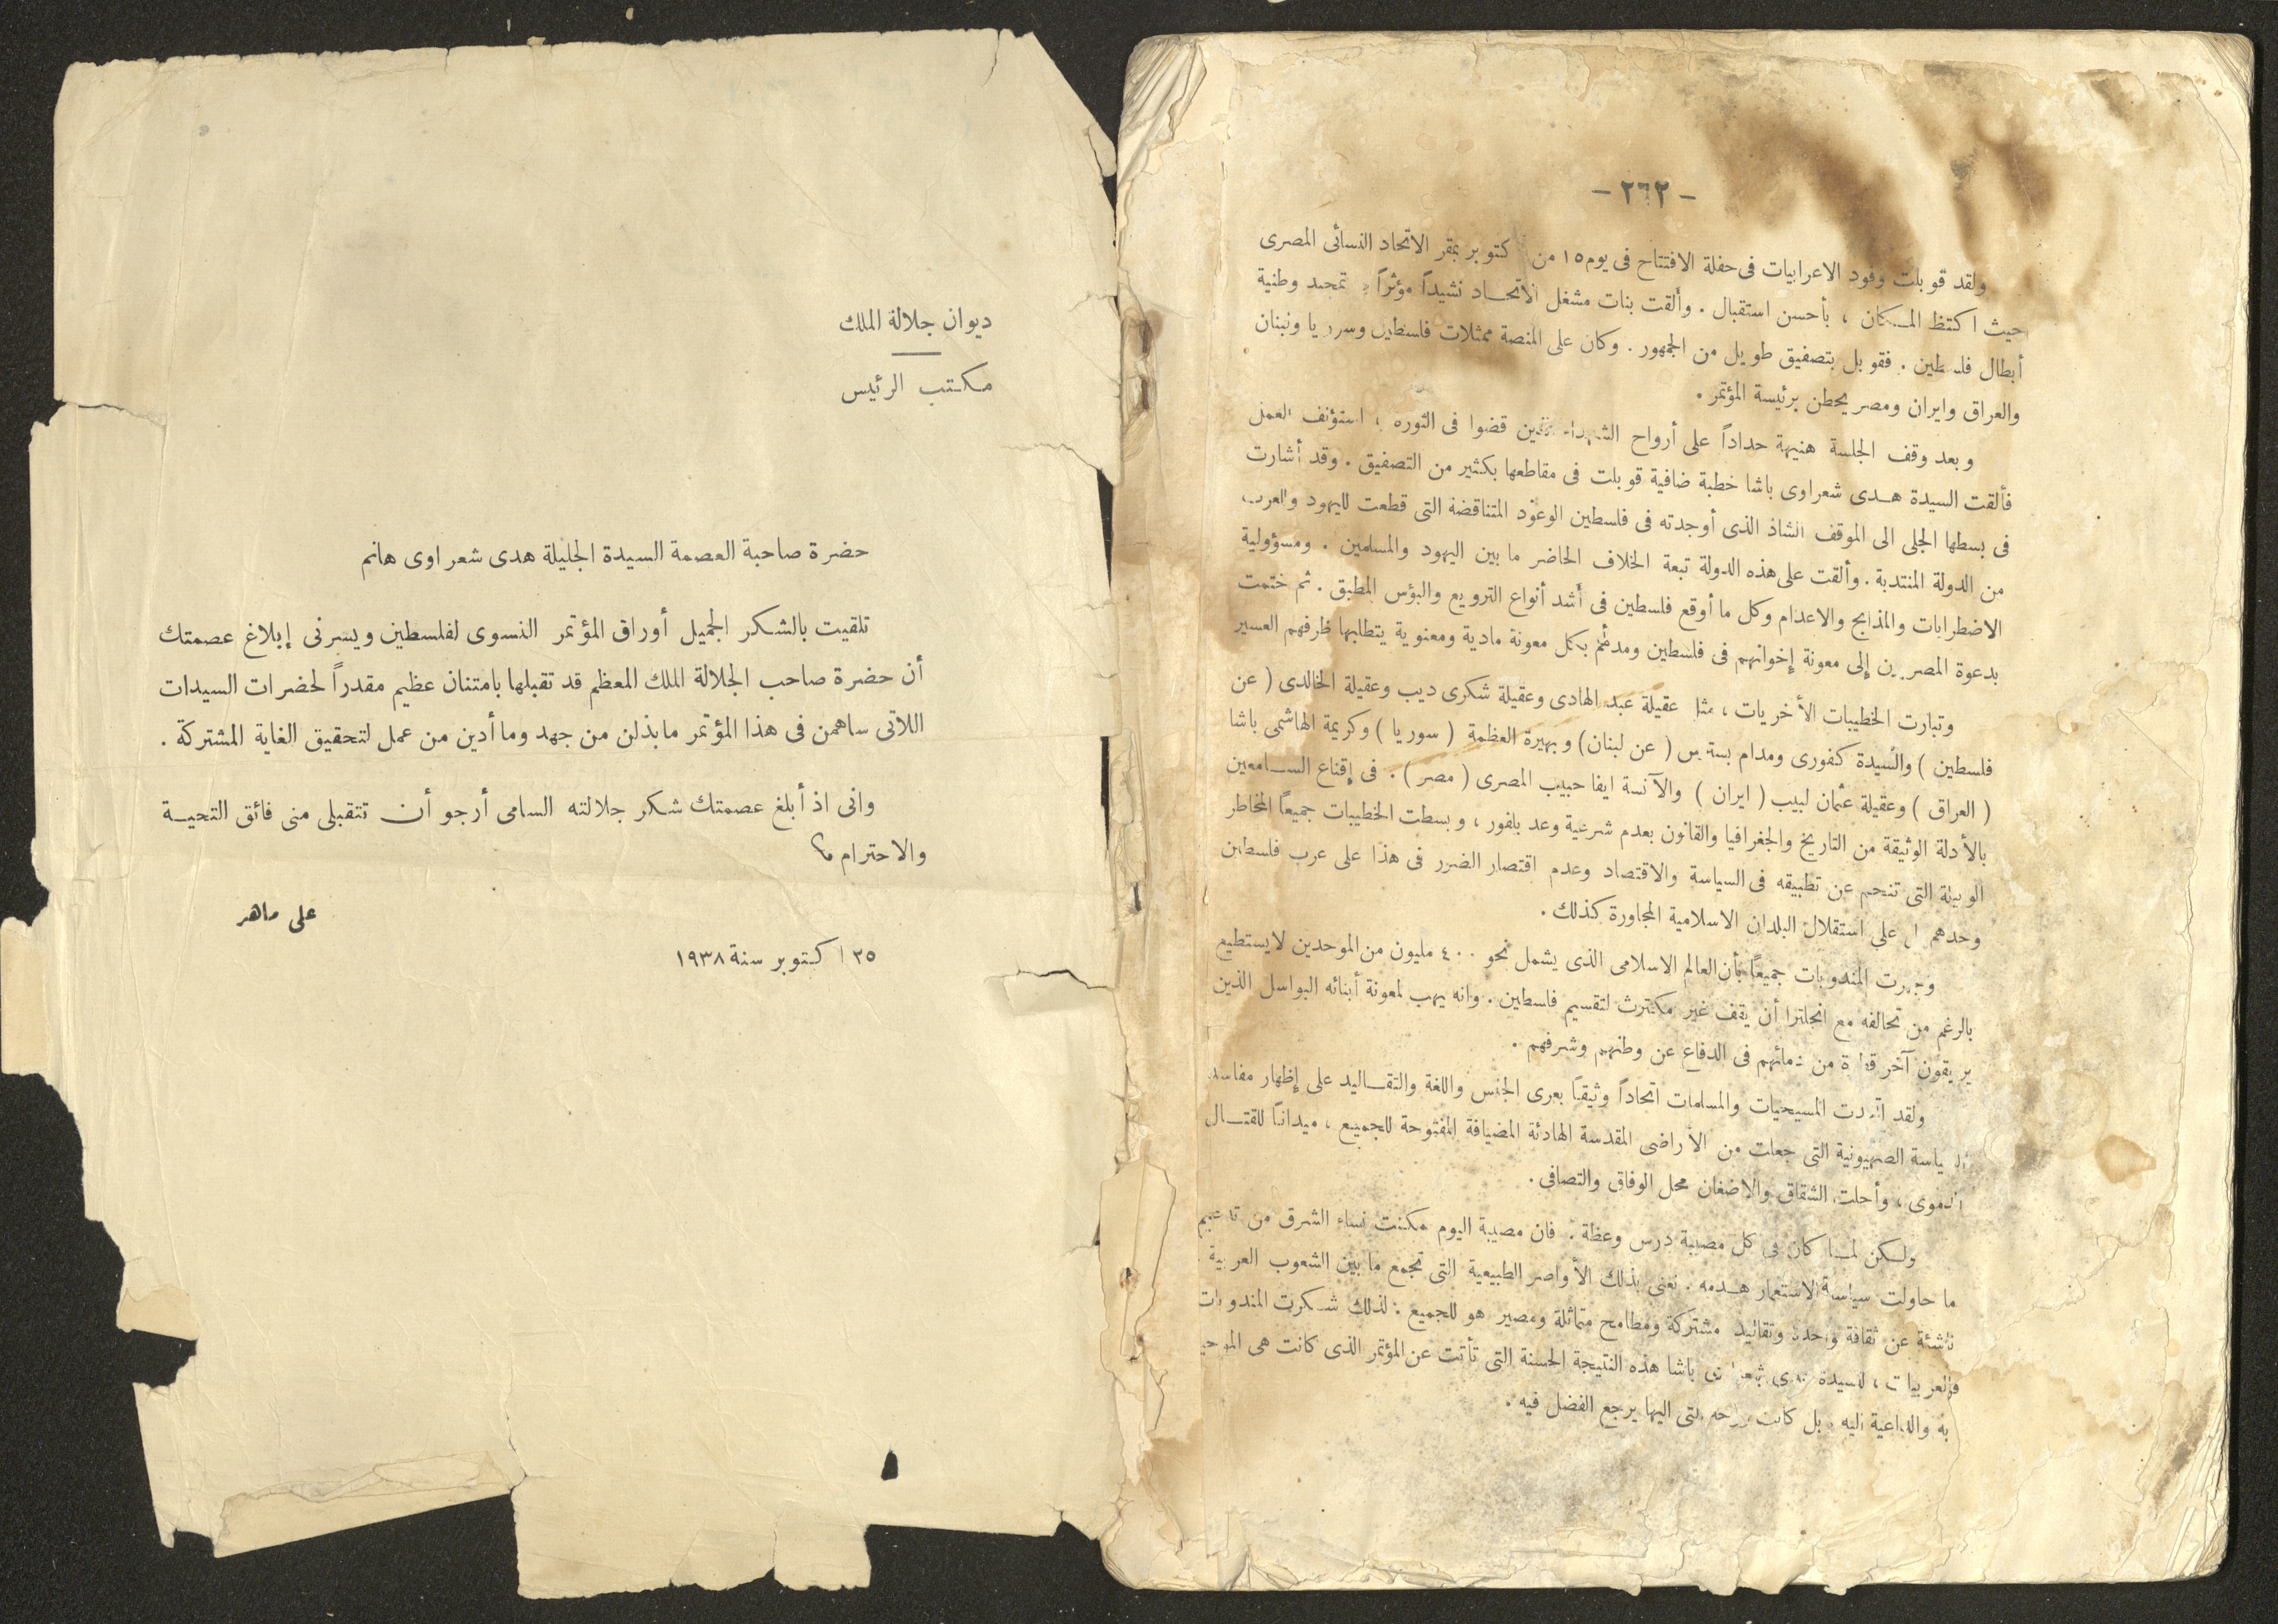 - ٢٦٢ -
ولقد قوبلت وفود الاعرابيات فى حفلة الافتتاح فى يوم ١٥ من كتوبر بمقر الاتحاد النسائى المصرى
حيث اكتظ المكان ، بأحسن استقبال . وألقت بنات مشغل الاتحاد نشيداً مؤثراً تمجيد وطنية
أبطال فلسطين . فقوبل بتصفيق طويل من الجمهور . وكان على المنصة ممثلات فلسطين وسوريا ولبنان
والعراق وايران ومصر يحطن برئيسة المؤتمر .
وبعد وقف الجلسة هنيهة حداداً على أرواح الشهداء الذين قضوا فى الثورة ، استؤنف العمل
فألقت السيدة هدى شعراوى باشا خطبة ضافية قوبلت فى مقاطعها بكثير من التصفيق . وقد أشارت
فى بسطها الجلى الى الموقف الشاذ الذى أوجدته فى فلسطين الوعود المتناقضة التى قطعت لليهود والعرب
من الدولة المنتدبة . وألقت على هذه الدولة تبعة الخلاف الحاضر ما بين اليهود والمسلمين . ومسؤولية
الاضطرابات والمذابح والاعدام وكل ما أوقع فلسطين فى أشد أنواع الترويع والبؤس المطبق . ثم ختمت
بدعوة المصريين إلى معونة إخوانهم فى فلسطين ومدهم بكل معونة مادية ومعنوية يتطلبها ظرفهم العسير
وتبارت الخطيبات الأخريات ، مثل عقيلة عبد الهادى وعقيلة شكرى ديب وعقيلة الخالدى ( عن
فلسطين ) والسيدة كفورى ومدام بسترس ( عن لبنان ) وبهيرة العظمة ( سوريا ) وكريمة الهاشمى باشا
( العراق ) وعقيلة عثمان لبيب ( ايران ) والآنسة ايفا حبيب المصرى ( مصر ) . فى إقناع السامعين
بالأدلة الوثيقة من التاريخ والجغرافيا والقانون بعدم شرعية وعد بلفور ، وبسطت الخطيبات جميعاً المخاطر
الوبيلة التى تنجم عن تطبيقه فى السياسة والاقتصاد وعدم اقتصار الضرر فى هذا على عرب فلسطين
وحدهم على استقلال البلدان الاسلامية المجاورة كذلك .
وجهرت المندوبات جميعاً بأن العالم الاسلامى الذى يشمل نحو ٤٠٠ مليون من الموحدين لا يستطيع
بالرغم من تحالفه مع انجلترا أن يقف غير مكترث لتقسيم فلسطين . وانه يهب لمعونة أبنائه البواسل الذين
يريقون آخر قطرة من دمائهم فى الدفاع عن وطنهم وشرفهم .
ولقد اتحدت المسيحيات والمسلمات اتحاداً وثيقاً بعرى الجنس واللغة والتقاليد على إظهار مفاسد
السياسة الصهيونية التى جعلت من الأراضى المقدسة الهادئة المضيافة المفتوحة للجميع ، ميداناً للقتال
الدموى ، وأحلت الشقاق والاضغان محل الوفاق والتصافى .
ولكن لما كان فى كل مصيبة درس وعظة . فان مصيبة اليوم مكنت نساء الشرق من تدعيم
ما حاولت سياسة الاستعمار هدمه . نعنى بذلك الأواصر الطبيعية التى تجمع ما بين الشعوب العربية
ناشئة عن ثقافة واحدة وتقاليد مشتركة ومطامح متماثلة ومصير هو للجميع . لذلك شكرت المندوبات
العربيات ، للسيدة هدى شعراوى باشا هذه النتيجة الحسنة التى تأتت عن المؤتمر الذى كانت هى الموحية
به والداعية اليه ، بل كانت التى اليها يرجع الفضل فيه .
ديوان جلالة الملك
مكتب الرئيس
حضرة صاحبة العصمة السيدة الجليلة هدى شعراوى هانم
تلقيت بالشكر الجميل أوراق المؤتمر النسوى لفلسطين ويسرنى إبلاغ عصمتك
أن حضرة صاحب الجلالة الملك المعظم قد تقبلها بامتنان عظيم مقدراً لحضرات السيدات
اللاتى ساهمن فى هذا المؤتمر ما بذلن من جهد وما أدين من عمل لتحقيق الغاية المشتركة .
وانى اذ أبلغ عصمتك شكر جلالته السامى أرجو أن تتقبلى منى فائق التحية
والاحترام
على ماهر
٢٥ اكتوبر سنة ١٩٣٨